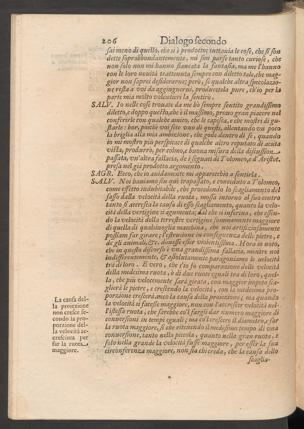 206 Dialogo secondo
sai meno di quello, che si è prodotto; tuttavia le cose, che si son
dette soprabbondantemente, mi son parse tanto curiose, che
non solo non mi hanno stancata la fantasia, ma me l'hanno
con le loro novità trattenuta sempre con diletto tale, che maggior
non saprei desiderarne; però, se qualche altra specolazione
resta a voi da aggiugnerci, producetela pure, ch'io per la
parte mia molto volentieri la sentirò.
SALV. Io nelle cose trovate da me hò sempre sentito grandissimo
diletto, e doppo questo, che è il massimo, provo gran piacere nel
conferirle con qualche amico, che le capisca, e che mostri di gustarle:
hor, poichè voi sete uno di questi, allentando un poco
la briglia alla mia ambizione, che gode dentro di se, quando
io mi mostro più perspicace di qualche altro reputato di acuta
vista, produrrò, per colmo, e buona misura della disputazion
passata, vn'altra fallacia, de i seguaci di Tolomeo, e d'Aristot.
presa nel già prodotto argomento.
SAGR. Ecco, che io avidamente mi apparecchio a sentirla.
SALV. Noi haviamo sin quì trapassato, e conceduto a Tolomeo,
come effetto indubitabile, che procedendo lo scagliamento del
sasso dalla velocità della ruota, mossa intorno al suo centro
tanto si accresca la causa di esso scagliamento, quanto la velocità
della vertigine si agumenta;
della vertigine si agumenta; dal che si inferiva, che essendo
la velocità della terrestre vertigine sommamente maggiore
di quella di qualsivoglia macchina, che noi artifiziosamente
possiam far girare; l'estrusione in conseguenza delle pietre, e
de gli animali, &c. dovesse esser violentissima. Hora io noto,
che in questo discorso è vna grandissima fallacia, mentre noi
indifferentemente, & assolutamente paragoniamo le velocità
tra di loro. È vero, che s'io fo comparazione delle velocità
della medesima ruota, ò di due ruote eguali tra di loro, quella,
che più velocemente sarà girata, con maggior impeto scaglierà
le pietre, e crescendo la velocità, con la medesima proporzione
crescerà anco la causa della proiezione; ma quando
la velocità si facesse maggiore, non con l'accrescer velocità nell'
istessa ruota, che sarebbe co'l fargli dar numero maggiore di
conversioni in tempi eguali; ma co'l crescere il diametro, e far
la ruota maggiore, sì che ritenendo il medesimo tempo di una
conversione, tanto nella piccola, quanto nella gran ruota, e
solo nella grande la velocità fusse maggiore, per esser la sua
circonferenza maggiore, non sia chi creda, che la causa dello
scaglia-
La causa della
proiezione
non cresce secondo
la proporzione
della
velocità accresciuta
per
far la ruota
maggiore.